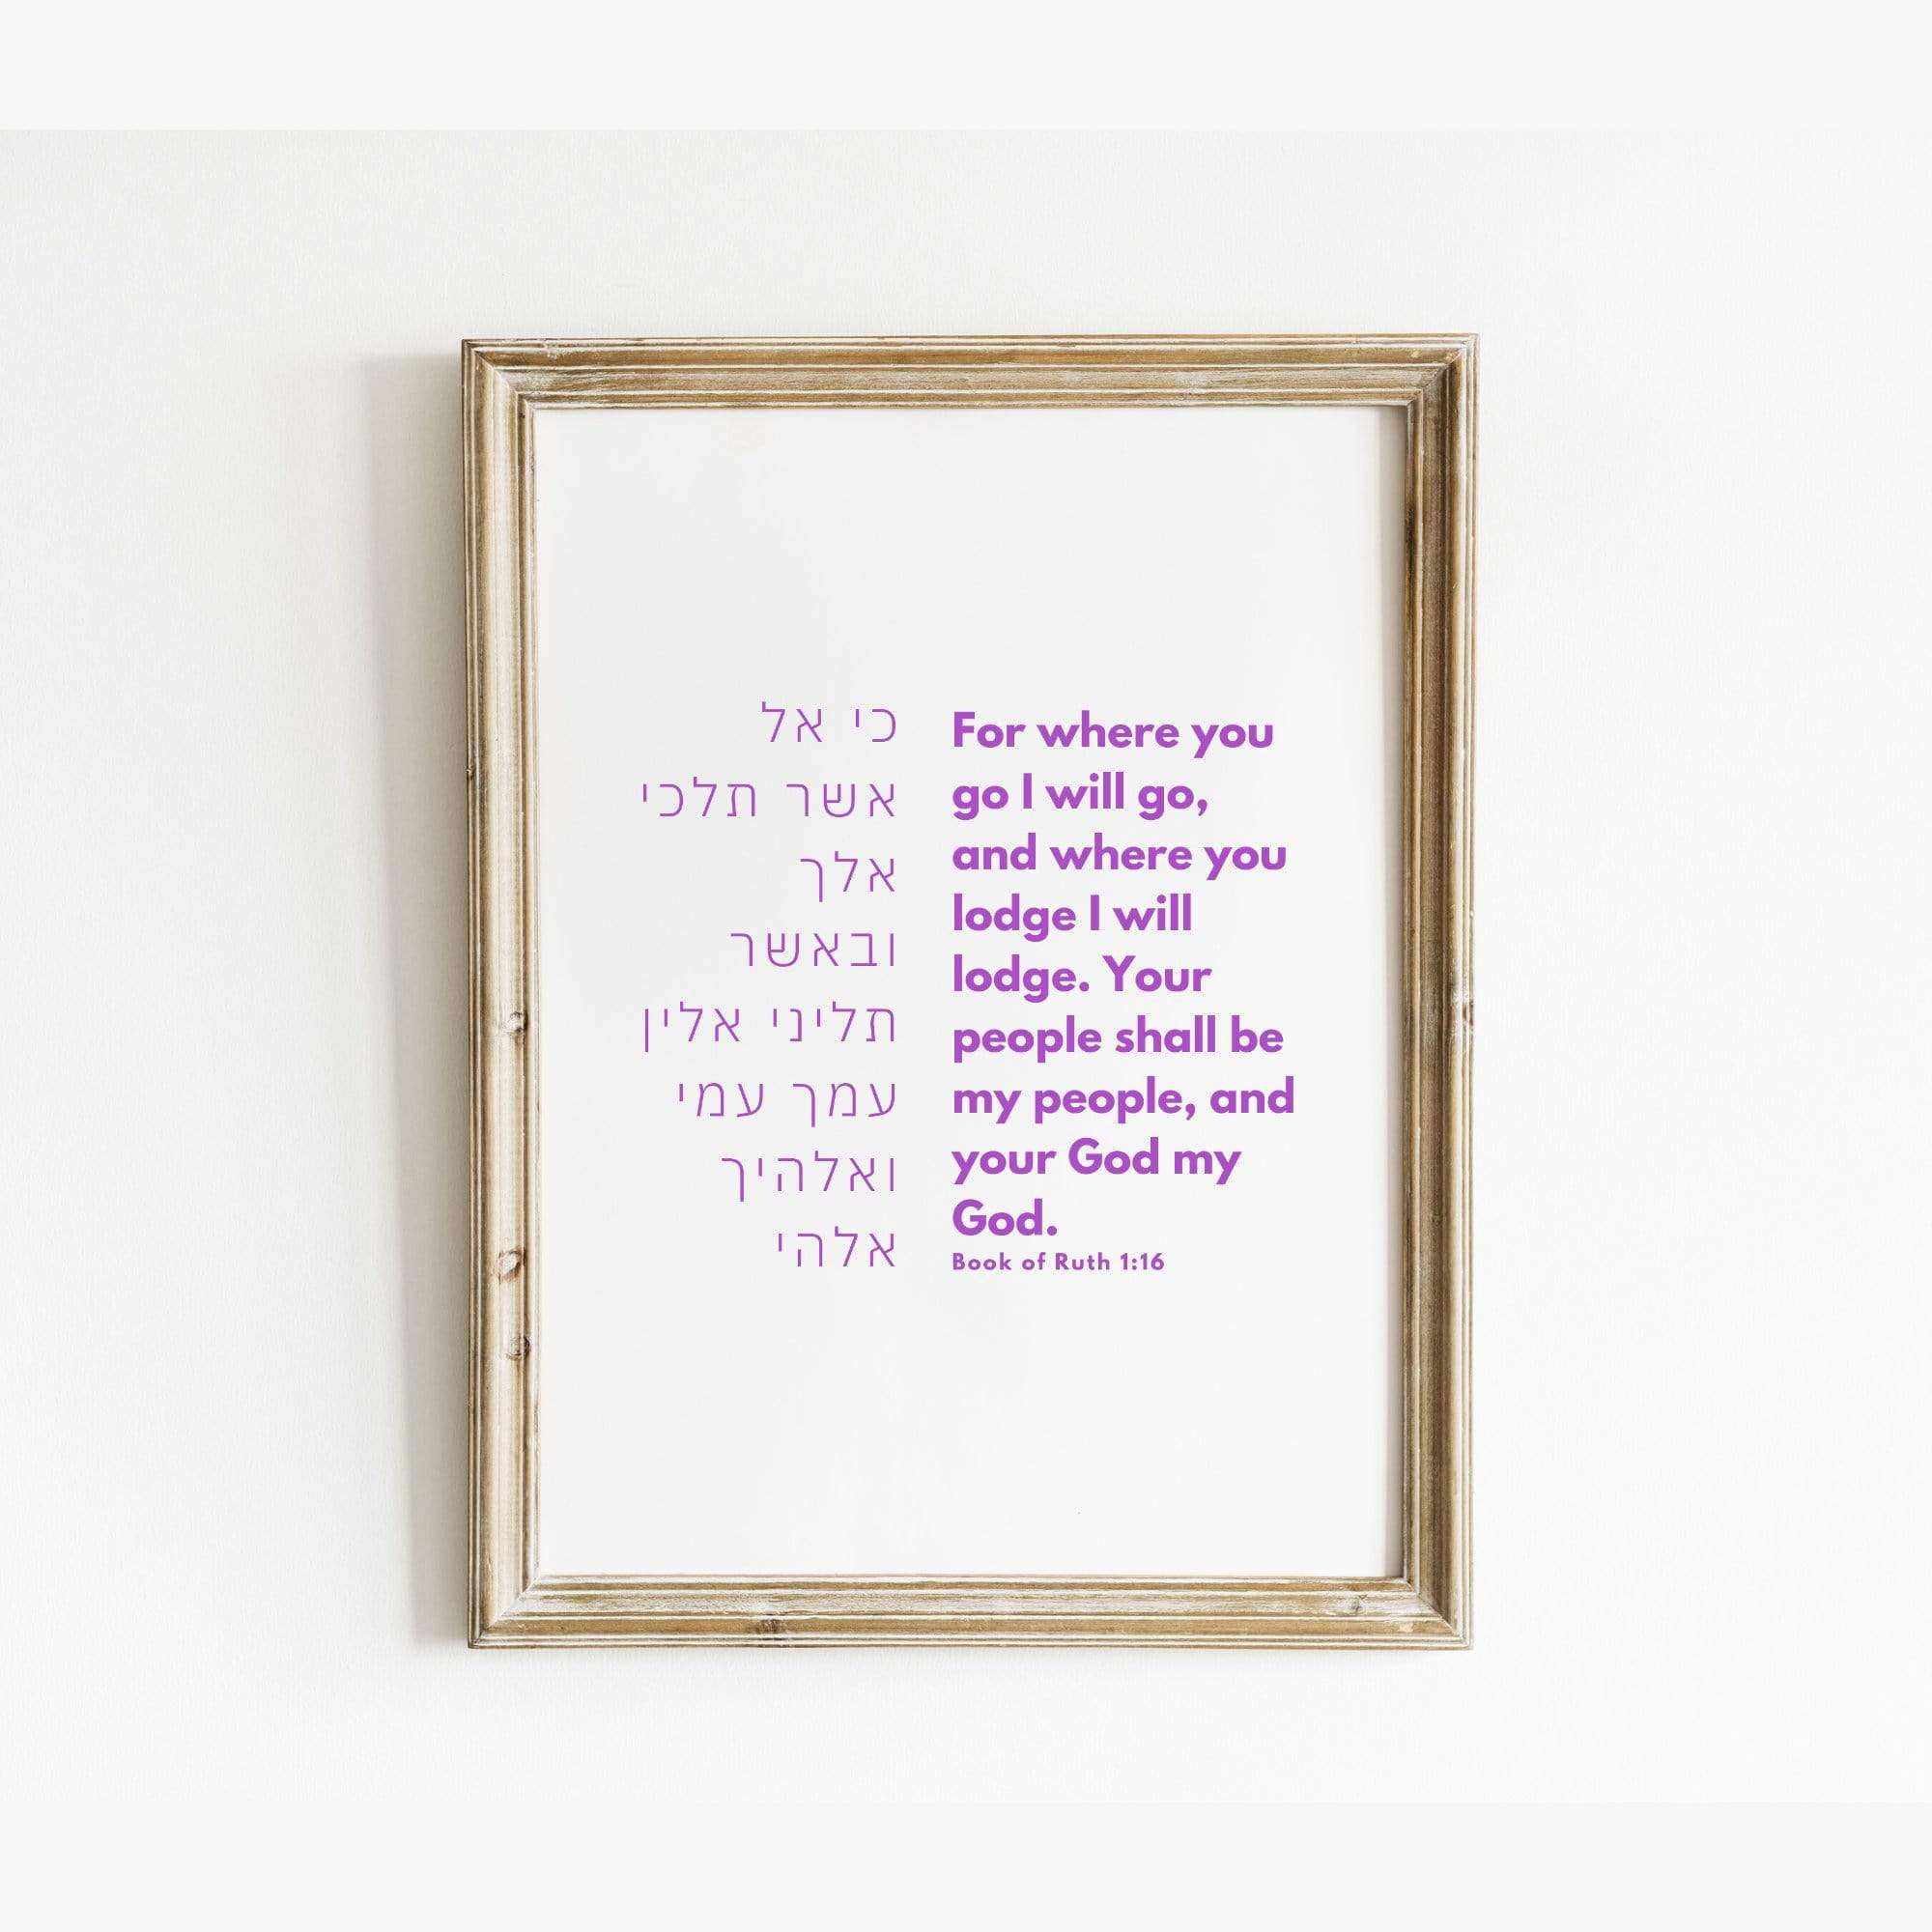 כי אל
אשר תלכי
אלך
ובאשר
תליני אלין
עמך עמי
ואלהיך
אלהי
For where you
go I will go,
and where you
lodge I will
lodge. Your
people shall be
my people, and
your God my
God.
Book of Ruth 1:16